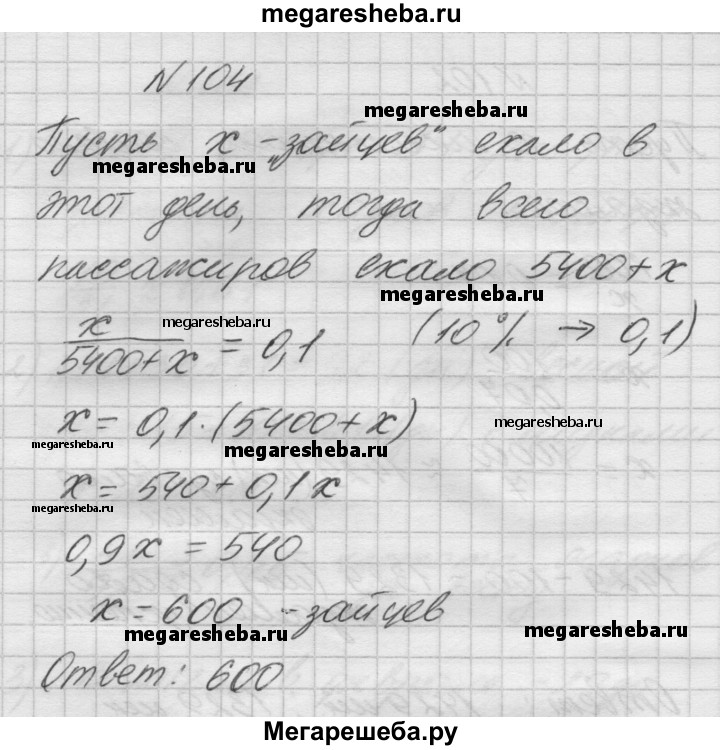 megaresheba.ru
N 104
megaresheba.ru
Пусть x - "зайцев" ехало в
megaresheba.ru
этот день, тогда всего
пассажиров ехало 5400+x
megaresheba.ru
x / 5400+x = 0,1 (10% → 0,1)
megaresheba.ru
x = 0,1·(5400+x)
megaresheba.ru
megaresheba.ru
x = 540+0,1x
megaresheba.ru
0,9x = 540
x = 600 - зайцев
megaresheba.ru
megaresheba.ru
Ответ: 600
Мегарешеба.ру